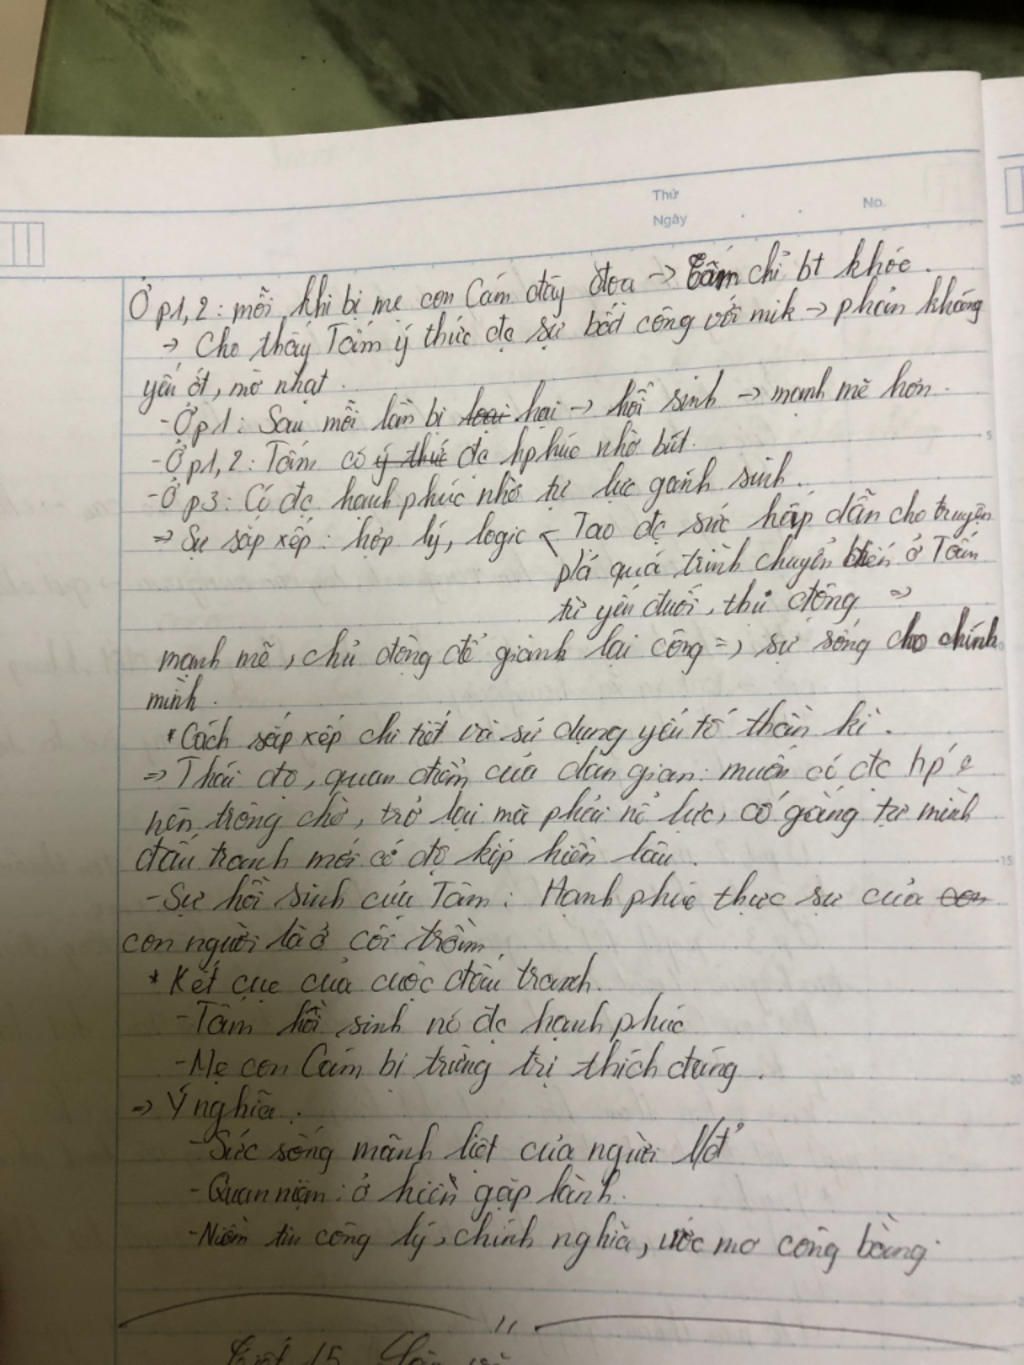 Thứ
Ngày . . No.
Ở p1, 2: mỗi khi bị mẹ con Cám đày đọa → Tấm chỉ bt khóc.
→ Cho thấy Tấm ý thức đc sự bất công với mik → phản kháng
yếu ớt, mờ nhạt.
- Ở p1: Sau mỗi lần bị hại → hồi sinh → mạnh mẽ hơn.
- Ở p1, 2: Tấm có đc hphúc nhờ bụt.
- Ở p3: Có đc hạnh phúc nhờ tự lực giành sinh.
⇒ Sự sắp xếp: hợp lý, logic < Tạo đc sức hấp dẫn cho truyện
p/á quá trình chuyển biến ở Tấm
từ yếu đuối, thụ động ⇒
mạnh mẽ, chủ động để giành lại công =, sự sống cho chính
mình.
* Cách sắp xếp chi tiết và sử dụng yếu tố thần kì.
⇒ Thái độ, quan điểm của dân gian: muốn có đc hp
nên trông chờ, trở lại mà phải nỗ lực, cố gắng tự mình
đấu tranh mới có
- Sự hồi sinh của Tấm: Hạnh phúc thực sự của
con người là ở cõi trần
* Kết cục của cuộc đấu tranh.
- Tấm hồi sinh nó đc hạnh phúc
- Mẹ con Cám bị trừng trị thích đáng.
⇒ Ý nghĩa.
- Sức sống mãnh liệt của người
- Quan niệm: ở hiền gặp lành.
- Niềm tin công lý, chính nghĩa, ước mơ công bằng.
Tiết 15